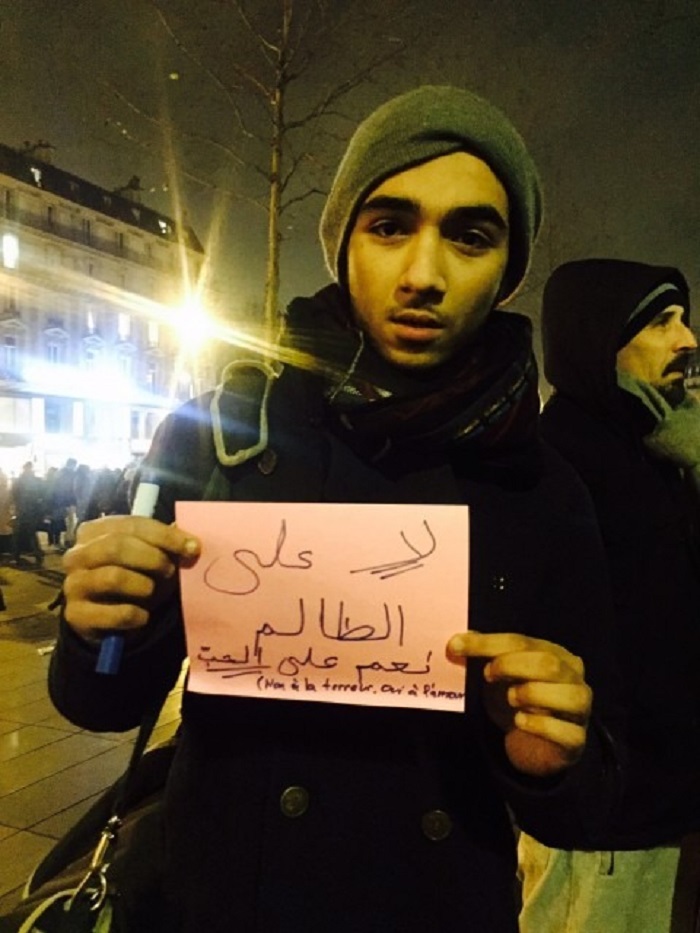 لا على
الظالم
نعم على الحب
(Non à la terreur. Oui à l'amour